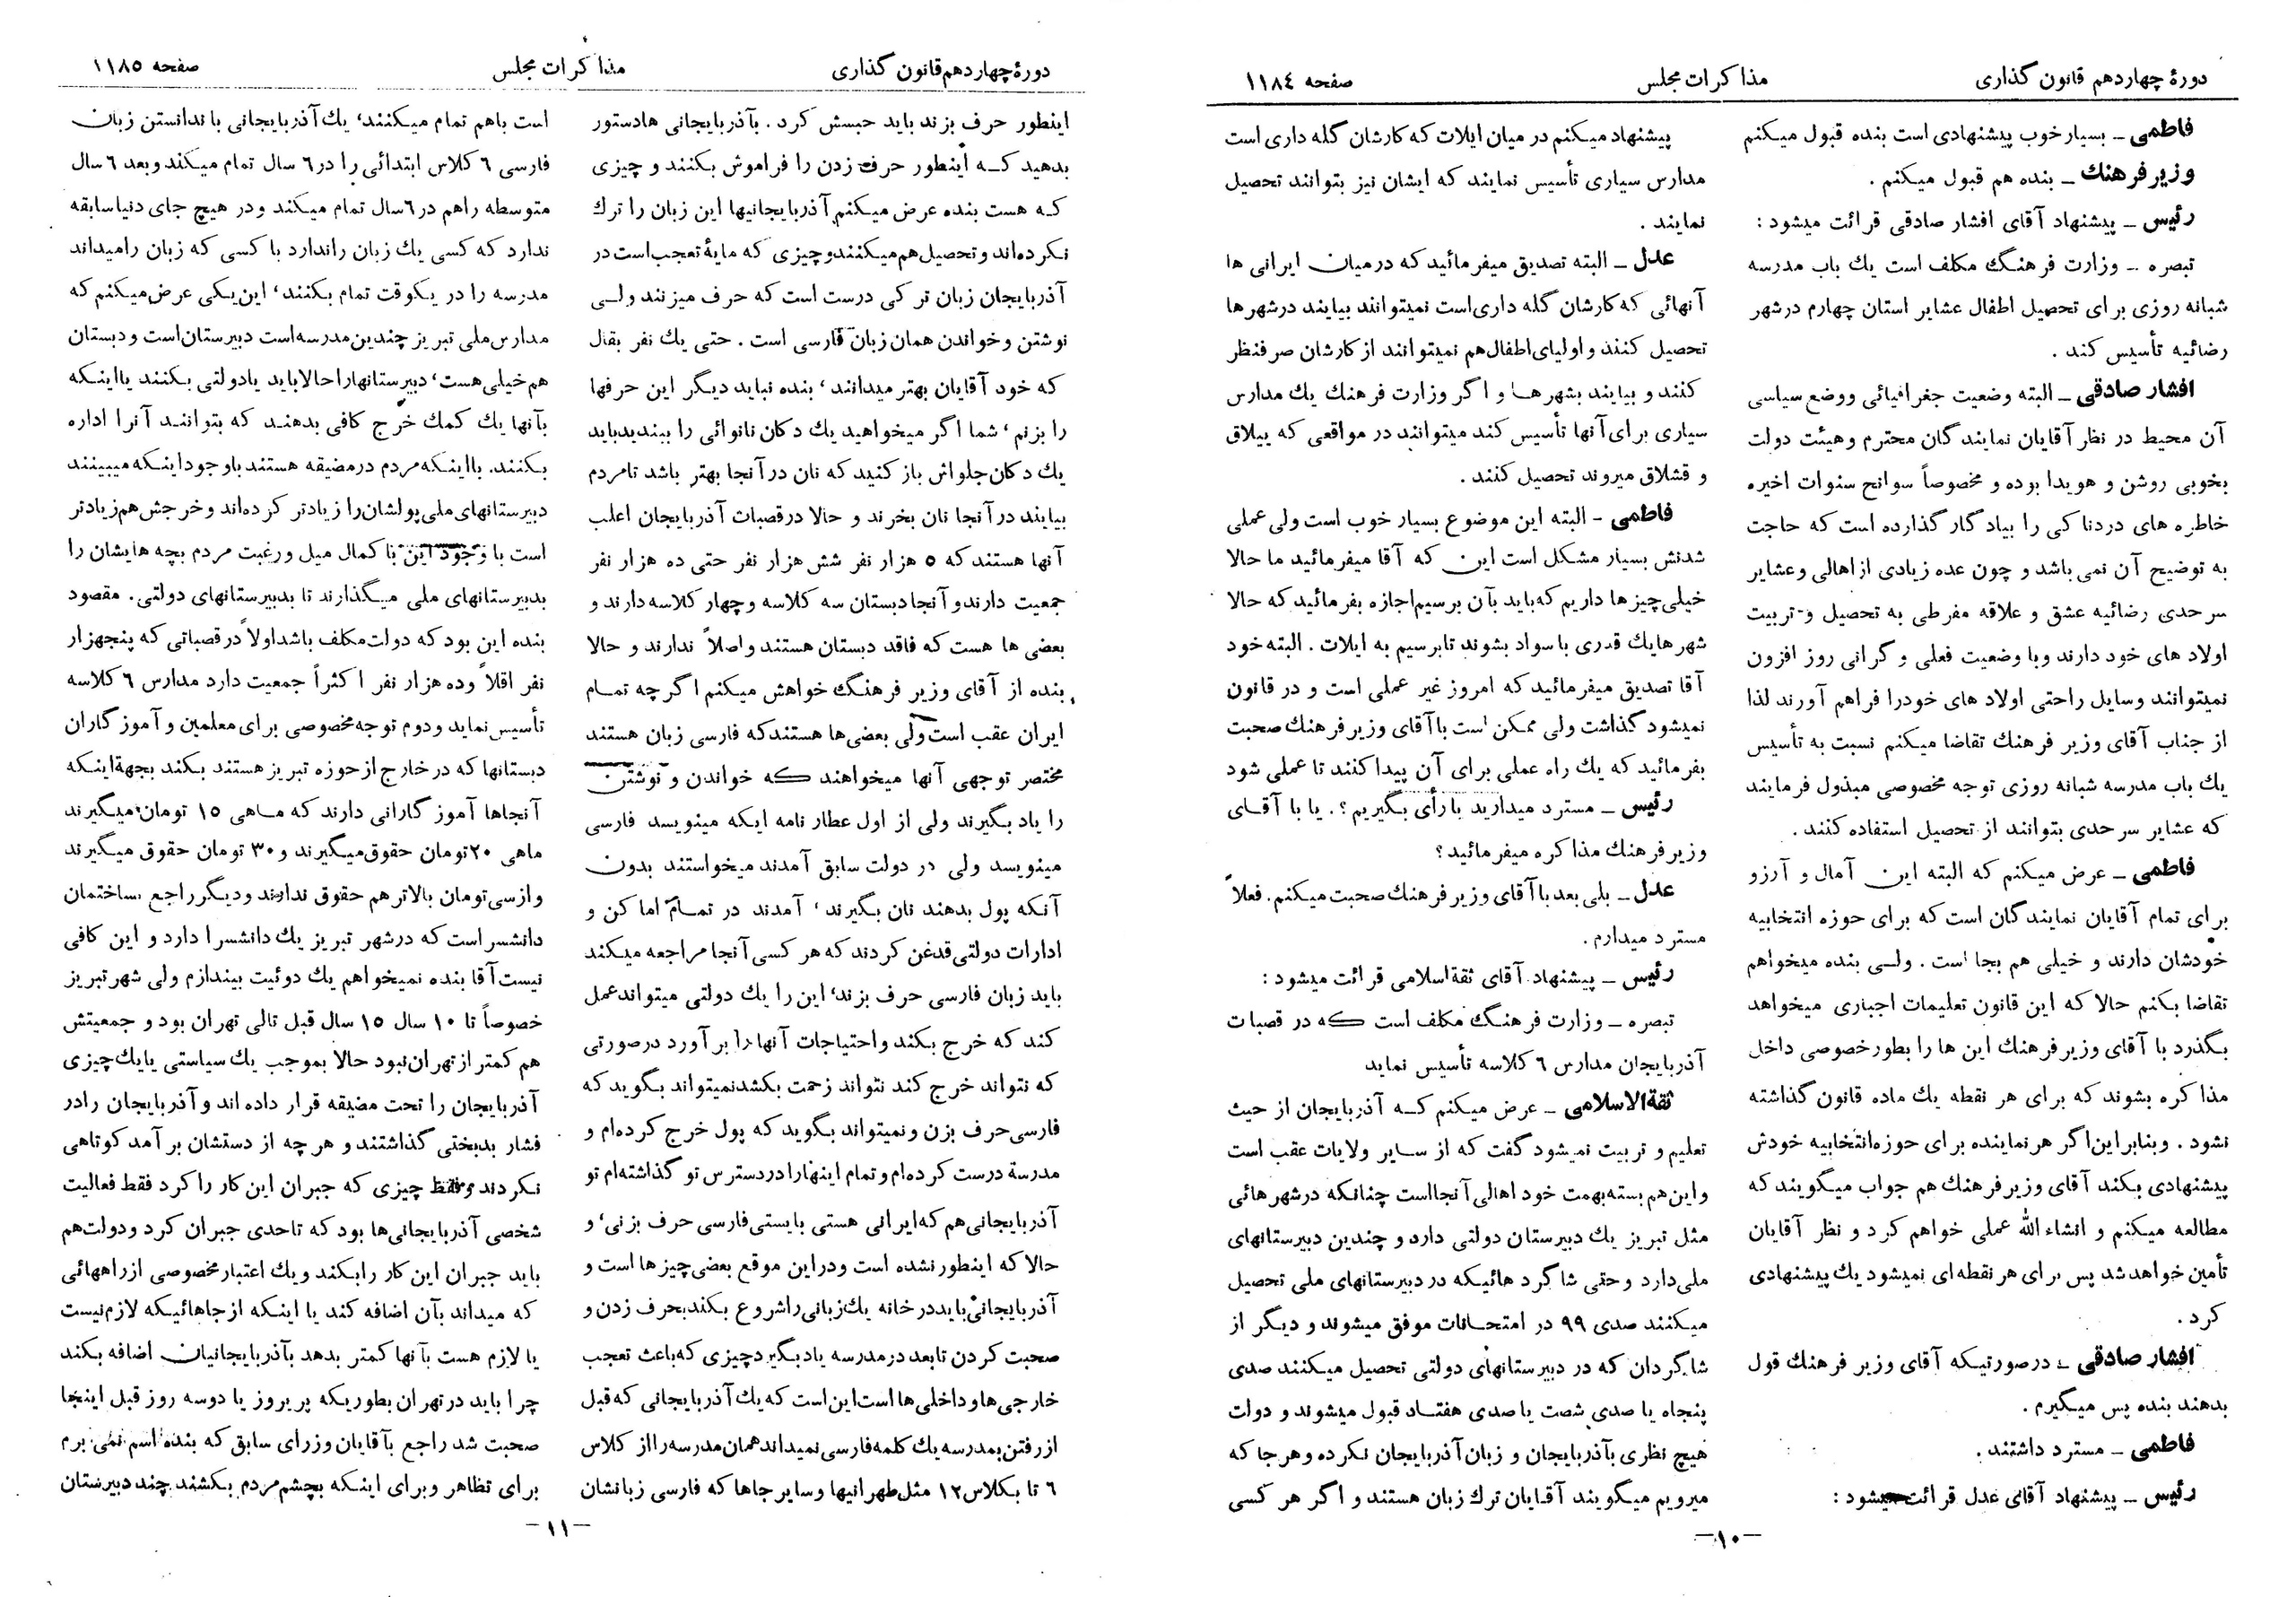 دورهٔ چهاردهم قانون گذاری
مذاکرات مجلس
صفحه ۱۱۸٤
فاطمی ــ بسیار خوب پیشنهادی است بنده قبول میکنم
وزیر فرهنك ــ بنده هم قبول میکنم .
رئیس ــ پیشنهاد آقای افشار صادقی قرائت میشود :
تبصره ــ وزارت فرهنگ مکلف است یك باب مدرسه
شبانه روزی برای تحصیل اطفال عشایر استان چهارم درشهر
رضائیه تأسیس کند .
افشار صادقی ــ البته وضعیت جغرافیائی ووضع سیاسی
آن محیط در نظر آقایان نمایندگان محترم وهیئت دولت
بخوبی روشن و هویدا بوده و مخصوصاً سوانح سنوات اخیره
خاطره های دردناکی را بیاد گار گذارده است که حاجت
به توضیح آن نمی باشد و چون عده زیادی از اهالی وعشایر
سرحدی رضائیه عشق و علاقه مفرطی به تحصیل و تربیت
اولاد های خود دارند وبا وضعیت فعلی و گرانی روز افزون
نمیتوانند وسایل راحتی اولاد های خودرا فراهم آورند لذا
از جناب آقای وزیر فرهنك تقاضا میکنم نسبت به تأسیس
یك باب مدرسه شبانه روزی توجه مخصوصی مبذول فرمایند
که عشایر سرحدی بتوانند از تحصیل استفاده کنند .
فاطمی ــ عرض میکنم که البته این آمال و آرزو
برای تمام آقایان نمایندگان است که برای حوزه انتخابیه
خودشان دارند و خیلی هم بجا است . ولی بنده میخواهم
تقاضا بکنم حالا که این قانون تعلیمات اجباری میخواهد
بگذرد با آقای وزیر فرهنك این ها را بطورخصوصی داخل
مذا کره بشوند که برای هر نقطه یك ماده قانون گذاشته
نشود . وبنابراین اگر هرنماینده برای حوزه انتخابیه خودش
پیشنهادی بکند آقای وزیر فرهنك هم جواب میگویند که
مطالعه میکنم و انشاء الله عملی خواهم کرد و نظر آقایان
تأمین خواهد شد پس برای هر نقطه ای نمیشود یك پیشنهادی
کرد .
افشار صادقی ــ درصورتیکه آقای وزیر فرهنك قول
بدهند بنده پس میگیرم .
فاطمی ــ مسترد داشتند .
رئیس ــ پیشنهاد آقای عدل قرائت میشود :
پیشنهاد میکنم در میان ایلات که کارشان گله داری است
مدارس سیاری تأسیس نمایند که ایشان نیز بتوانند تحصیل
نمایند .
عدل ــ البته تصدیق میفرمائید که درمیان ایرانی ها
آنهائی که کارشان گله داری است نمیتوانند بیایند درشهرها
تحصیل کنند و اولیای اطفال هم نمیتوانند از کارشان صرفنظر
کنند و بیایند بشهرها و اگر وزارت فرهنك یك مدارس
سیاری برای آنها تأسیس کند میتوانند در مواقعی که ییلاق
و قشلاق میروند تحصیل کنند .
فاطمی ــ البته این موضوع بسیار خوب است ولی عملی
شدنش بسیار مشکل است این که آقا میفرمائید ما حالا
خیلی چیز ها داریم که باید بآن برسیم اجازه بفرمائید که حالا
شهرها یك قدری با سواد بشوند تا برسیم به ایلات . البته خود
آقا تصدیق میفرمائید که امروز غیر عملی است و در قانون
نمیشود گذاشت ولی ممکن است با آقای وزیر فرهنك صحبت
بفرمائید که یك راه عملی برای آن پیدا کنند تا عملی شود
رئیس ــ مسترد میدارید یا رأی بگیریم ؟ . یا با آقای
وزیر فرهنك مذاکره میفرمائید ؟
عدل ــ بلی بعد با آقای وزیر فرهنك صحبت میکنم . فعلاً
مسترد میدارم .
رئیس ــ پیشنهاد آقای ثقة اسلامی قرائت میشود :
تبصره ــ وزارت فرهنگ مکلف است که در قصبات
آذربایجان مدارس ٦ کلاسه تأسیس نماید
ثقة الاسلامی ــ عرض میکنم که آذربایجان از حیث
تعلیم و تربیت نمیشود گفت که از سایر ولایات عقب است
واین هم بسته بهمت خود اهالی آنجااست چنانکه درشهر هائی
مثل تبریز یك دبیرستان دولتی دارد و چندین دبیرستانهای
ملی دارد و حتی شاگرد هائیکه در دبیرستانهای ملی تحصیل
میکنند صدی ۹۹ در امتحانات موفق میشوند و دیگر از
شاگردان که در دبیرستانهای دولتی تحصیل میکنند صدی
پنجاه یا صدی شصت یا صدی هفتاد قبول میشوند و دولت
هیچ نظری بآذربایجان و زبان آذربایجان نکرده وهرجا که
میرویم میگویند آقایان ترك زبان هستند و اگر هر کسی
ــ۱۰ــ
دورهٔ چهاردهم قانون گذاری
مذاکرات مجلس
صفحه ۱۱۸۵
اینطور حرف بزند باید حبسش کرد . بآذربایجانی هادستور
بدهید که اینطور حرف زدن را فراموش بکنند و چیزی
که هست بنده عرض میکنم آذربایجانیها این زبان را ترك
نکرده اند وتحصیل هم میکنند وچیزی که مایهٔ تعجب است در
آذربایجان زبان ترکی درست است که حرف میزنند ولی
نوشتن وخواندن همان زبان فارسی است . حتی یك نفر بقال
که خود آقایان بهتر میدانند ، بنده نباید دیگر این حرفها
را بزنم ، شما اگر میخواهید یك دکان نانوائی را ببندید باید
یك دکان جلواش باز کنید که نان درآنجا بهتر باشد تامردم
بیایند درآنجا نان بخرند و حالا درقصبات آذربایجان اغلب
آنها هستند که ۵ هزار نفر شش هزار نفر حتی ده هزار نفر
جمعیت دارند و آنجا دبستان سه کلاسه وچهار کلاسه دارند و
بعضی ها هست که فاقد دبستان هستند واصلاً ندارند و حالا
بنده از آقای وزیر فرهنگ خواهش میکنم اگر چه تمام
ایران عقب است ولی بعضی ها هستند که فارسی زبان هستند
مختصر توجهی آنها میخواهند که خواندن و نوشتن
را یاد بگیرند ولی از اول عطار نامه ایکه مینویسد فارسی
مینویسد ولی در دولت سابق آمدند میخواستند بدون
آنکه پول بدهند نان بگیرند ، آمدند در تمام اما کن و
ادارات دولتی قدغن کردند که هر کسی آنجا مراجعه میکند
باید زبان فارسی حرف بزند، این را یك دولتی میتواند عمل
کند که خرج بکند واحتیاجات آنها را برآورد درصورتی
که نتواند خرج کند نتواند زحمت بکشد نمیتواند بگوید که
فارسی حرف بزن ونمیتواند بگوید که پول خرج کرده ام و
مدرسه درست کرده ام و تمام اینها را دردسترس تو گذاشته ام تو
آذربایجانی هم که ایرانی هستی بایستی فارسی حرف بزنی، و
حالا که اینطور نشده است ودراین موقع بعضی چیز ها است و
آذربایجانی باید درخانه یك زبانی را شروع بکند بحرف زدن و
صحبت کردن تابعد در مدرسه یاد بگیرد چیزی که باعث تعجب
خارجی ها و داخلی ها است این است که یك آذربایجانی که قبل
از رفتن بمدرسه یك کلمه فارسی نمیداند همان مدرسه را از کلاس
٦ تا بکلاس ۱۲ مثل طهرانیها و سایر جاها که فارسی زبانشان
است باهم تمام میکنند، یك آذربایجانی با ندانستن زبان
فارسی ٦ کلاس ابتدائی را در ٦ سال تمام میکند وبعد ٦ سال
متوسطه راهم در ٦ سال تمام میکند ودر هیچ جای دنیا سابقه
ندارد که کسی یك زبان راندارد با کسی که زبان رامیداند
مدرسه را در یکوقت تمام بکنند، این یکی عرض میکنم که
مدارس ملی تبریز چندین مدرسه است دبیرستان است و دبستان
هم خیلی هست، دبیرستانها را حالا باید یا دولتی بکنند یا اینکه
بآنها یك کمك خرج کافی بدهند که بتوانند آنرا اداره
بکنند. با اینکه مردم درمضیقه هستند باوجود اینکه میبینند
دبیرستانهای ملی پولشان را زیادتر کرده اند وخرجش هم زیادتر
است با وجود این با کمال میل و رغبت مردم بچه هایشان را
بدبیرستانهای ملی میگذارند تا بدبیرستانهای دولتی . مقصود
بنده این بود که دولت مکلف باشد اولاً درقصباتی که پنجهزار
نفر اقلاً وده هزار نفر اکثراً جمعیت دارد مدارس ٦ کلاسه
تأسیس نماید و دوم توجه مخصوصی برای معلمین و آموزگاران
دبستانها که در خارج از حوزه تبریز هستند بکند بجهة اینکه
آنجاها آموز گارانی دارند که ماهی ۱۵ تومان میگیرند
ماهی ۲۰ تومان حقوق میگیرند و ۳۰ تومان حقوق میگیرند
و ازسی تومان بالاتر هم حقوق ندارند ودیگر راجع بساختمان
دانشسر است که درشهر تبریز یك دانشسرا دارد و این کافی
نیست آقا بنده نمیخواهم یك دوئیت بیندازم ولی شهر تبریز
خصوصاً تا ۱۰ سال ۱۵ سال قبل تالی تهران بود و جمعیتش
هم کمتر از تهران نبود حالا بموجب یك سیاستی یا یك چیزی
آذربایجان را تحت مضیقه قرار داده اند و آذربایجان رادر
فشار بدبختی گذاشتند و هر چه از دستشان برآمد کوتاهی
نکردند وفقط چیزی که جبران این کار را کرد فقط فعالیت
شخصی آذربایجانی ها بود که تاحدی جبران کرد و دولت هم
باید جبران این کار را بکند و یك اعتبار مخصوصی از راههائی
که میداند بآن اضافه کند یا اینکه از جاهائیکه لازم نیست
یا لازم هست بآنها کمتر بدهد بآذربایجانیان اضافه بکند
چرا باید در تهران بطوریکه پریروز یا دوسه روز قبل اینجا
صحبت شد راجع بآقایان وزرای سابق که بنده اسم نمی برم
برای تظاهر وبرای اینکه بچشم مردم بکشند چند دبیرستان
ــ۱۱ــ